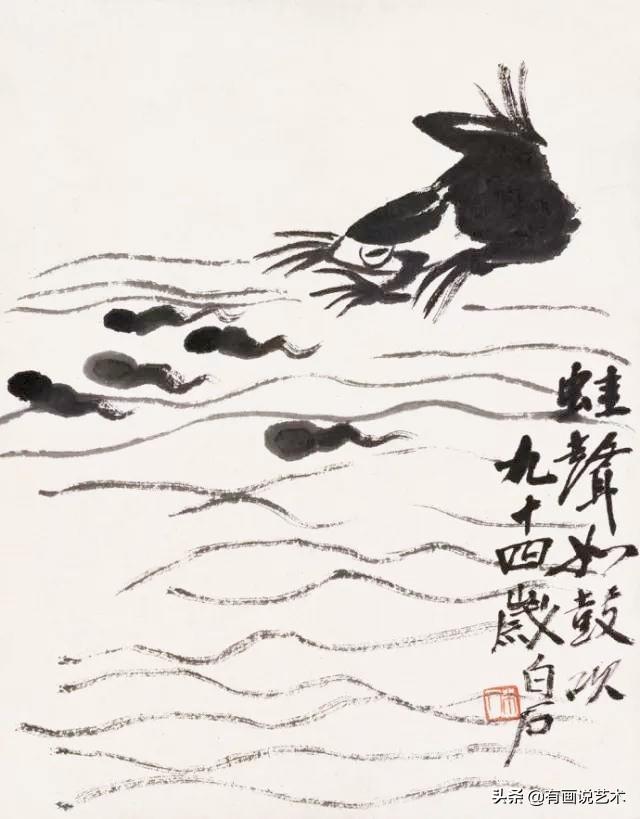 蛙聲如鼓吹
九十四歲白石
头条 @有画说艺术